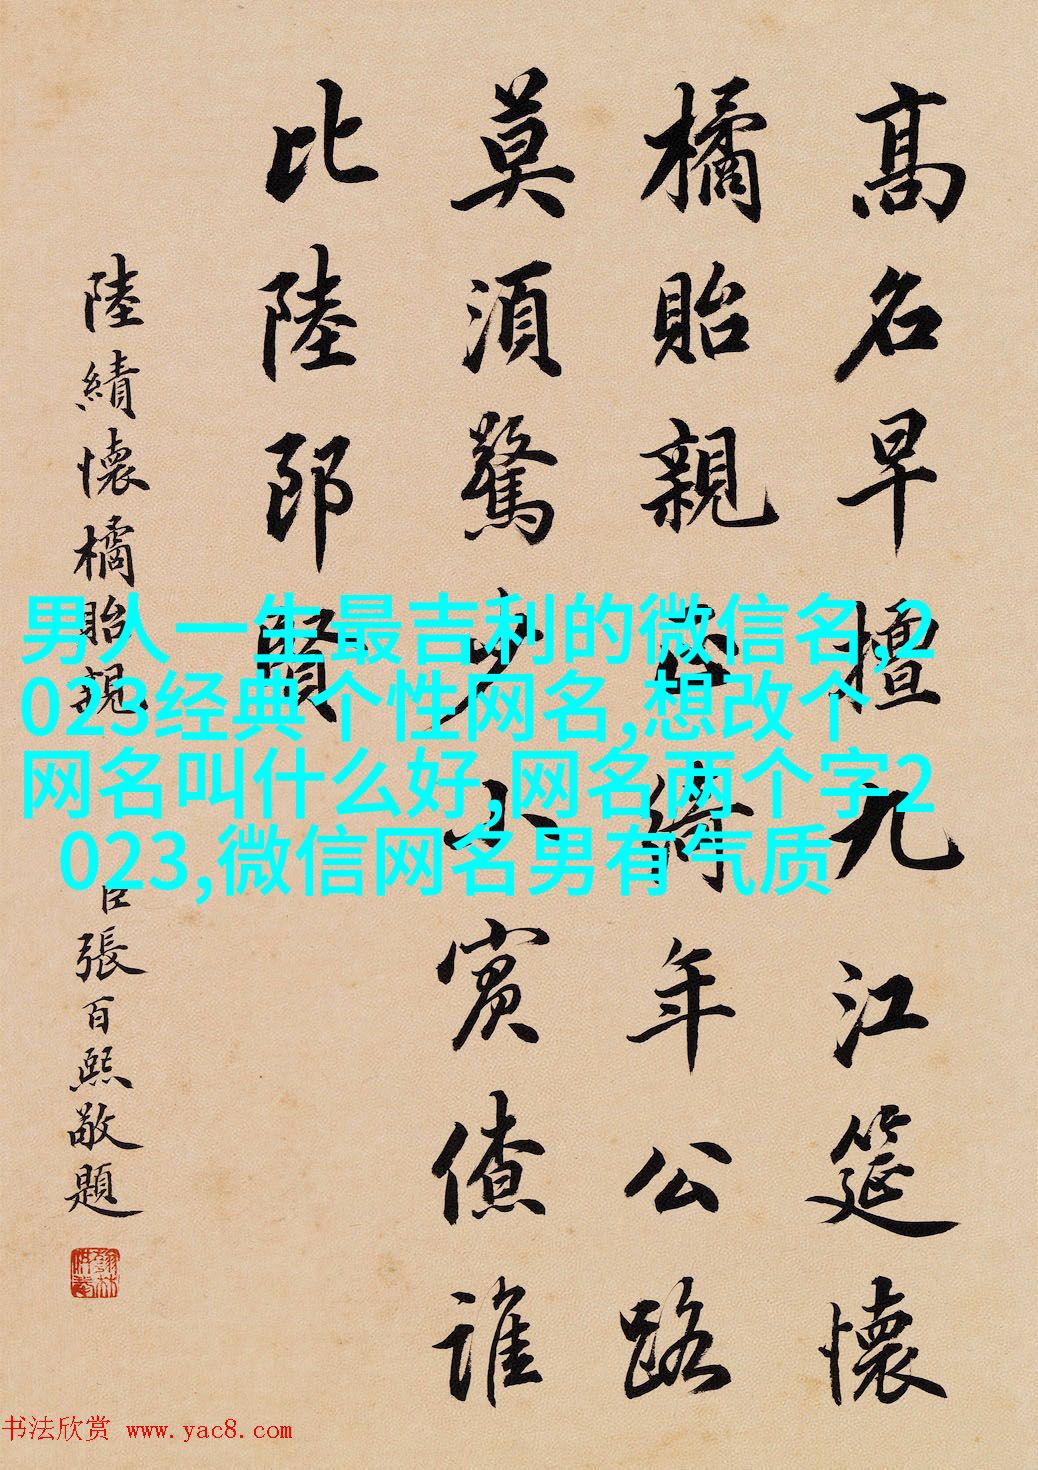 髙名早擅九江筵懷
橘貽親在綺年公路
莫須驚少小賓僚誰
比陸郎賢
陸績懷橘貽親
臣張百熙敬題
男人一生最吉利的微信名,2
023经典个性网名,想改个
网名叫什么好,网名两个字2
023,微信网名男有气质
书法欣赏 www.yac8.com